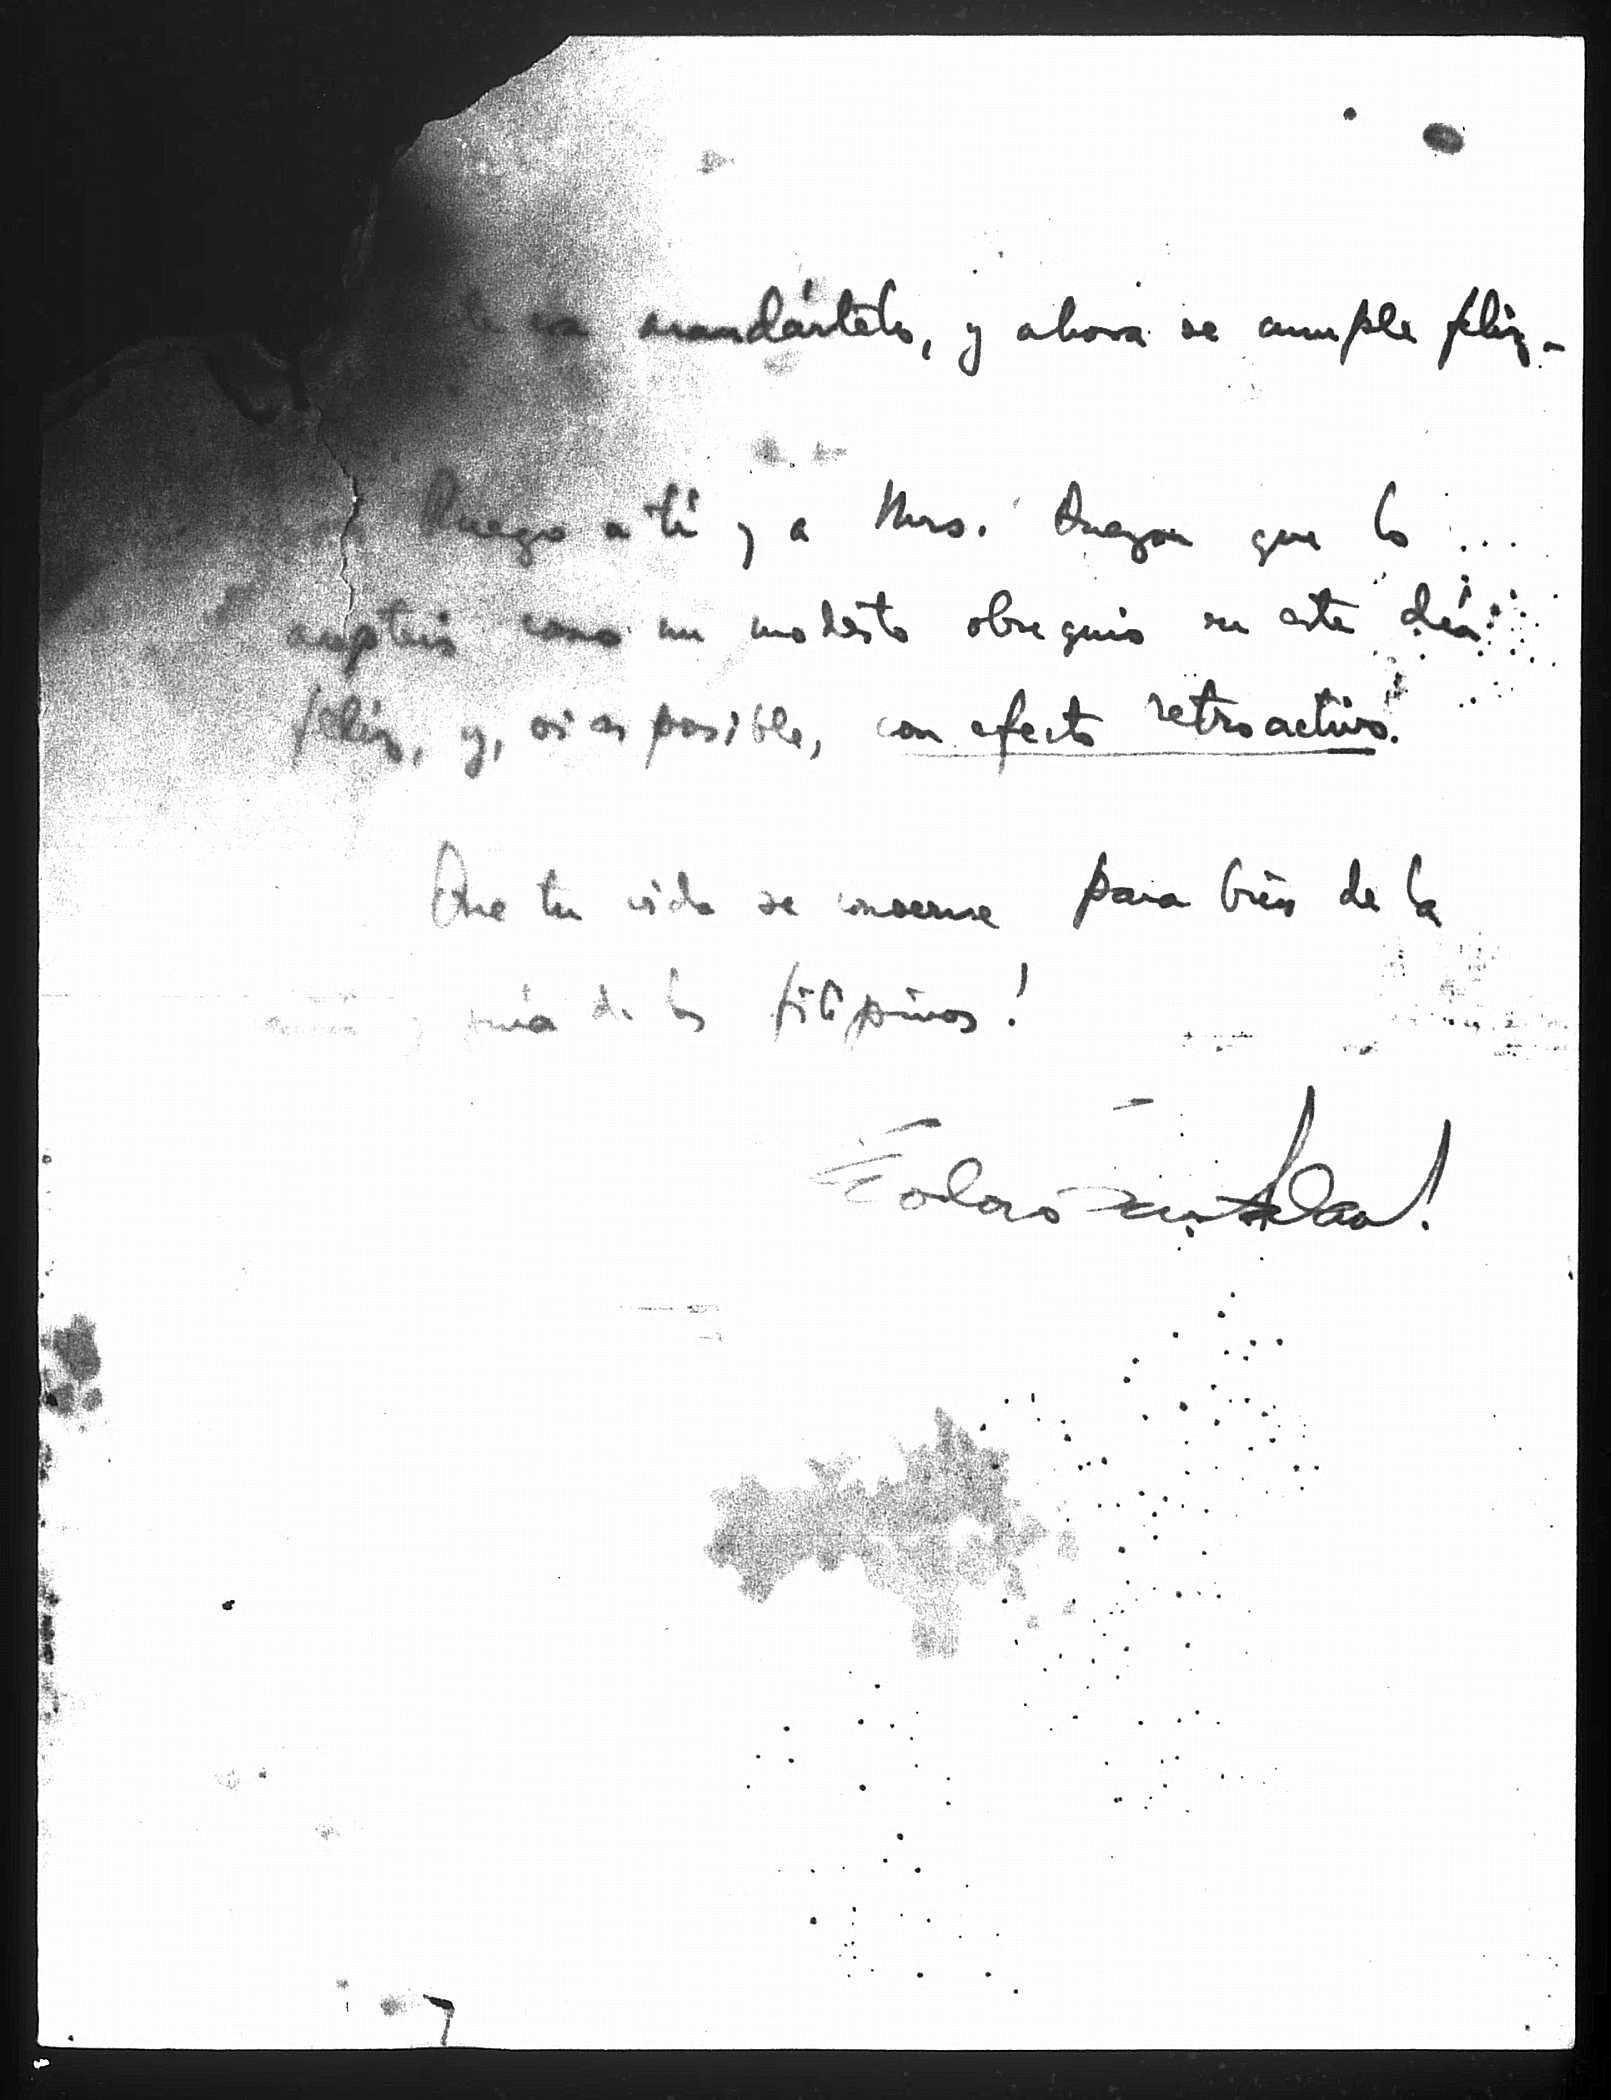 mandártelo, y ahora se cumple feliz-
Ruego a tí y a Mrs. Quezon que lo
acepteis como un modesto obsequio en este día
feliz, y, si es posible, con efecto retroactivo.
Que tu vida se conserve para bien de la
de los filipinos!
Teodoro